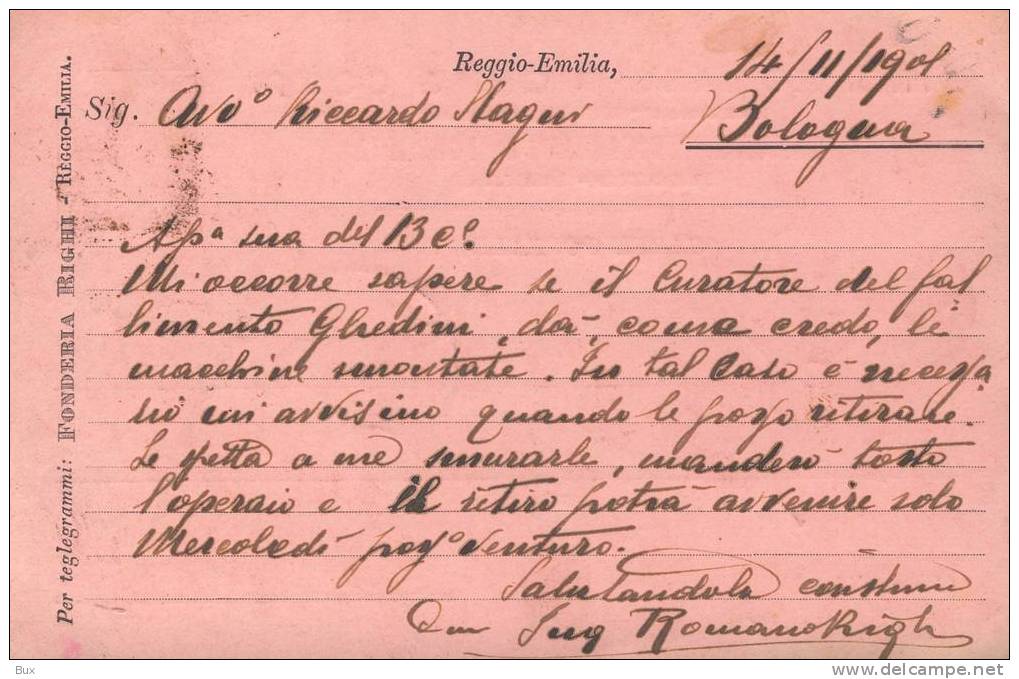 Reggio-Emilia, 14/11/1901
Sig. Avvº Riccardo Bologna
Per teglegrammi: FONDERIA RIGHI - REGGIO-EMILIA.
Apª sua del 13 cº.
Mi occorre sapere se il Curatore del fal
limento Ghedini, dà, come credo, le
macchine smontate. In tal caso è necessa
rio mi avvisino quando le posso ritirare.
Se spetta a me smurarle, manderò tosto
l'operaio e il ritiro potrà avvenire solo
Mercoledì venturo.
Salutandola
Ing Romano Righi
Bux
www.delcampe.net